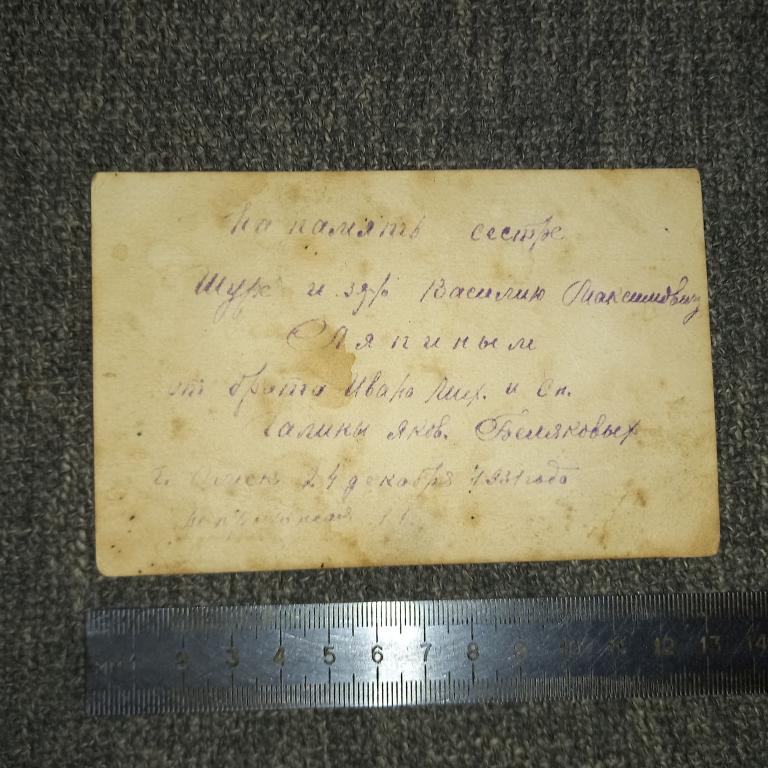 На память сестре
Шуре и зятю Василию Максимовичу
Ляпиным
от брата Ивана Мих. и сп.
Галины Яков. Беляковых
г. Омск 24 декабря 1931 года
3 4 5 6 7 8 9 10 11 12 13 14